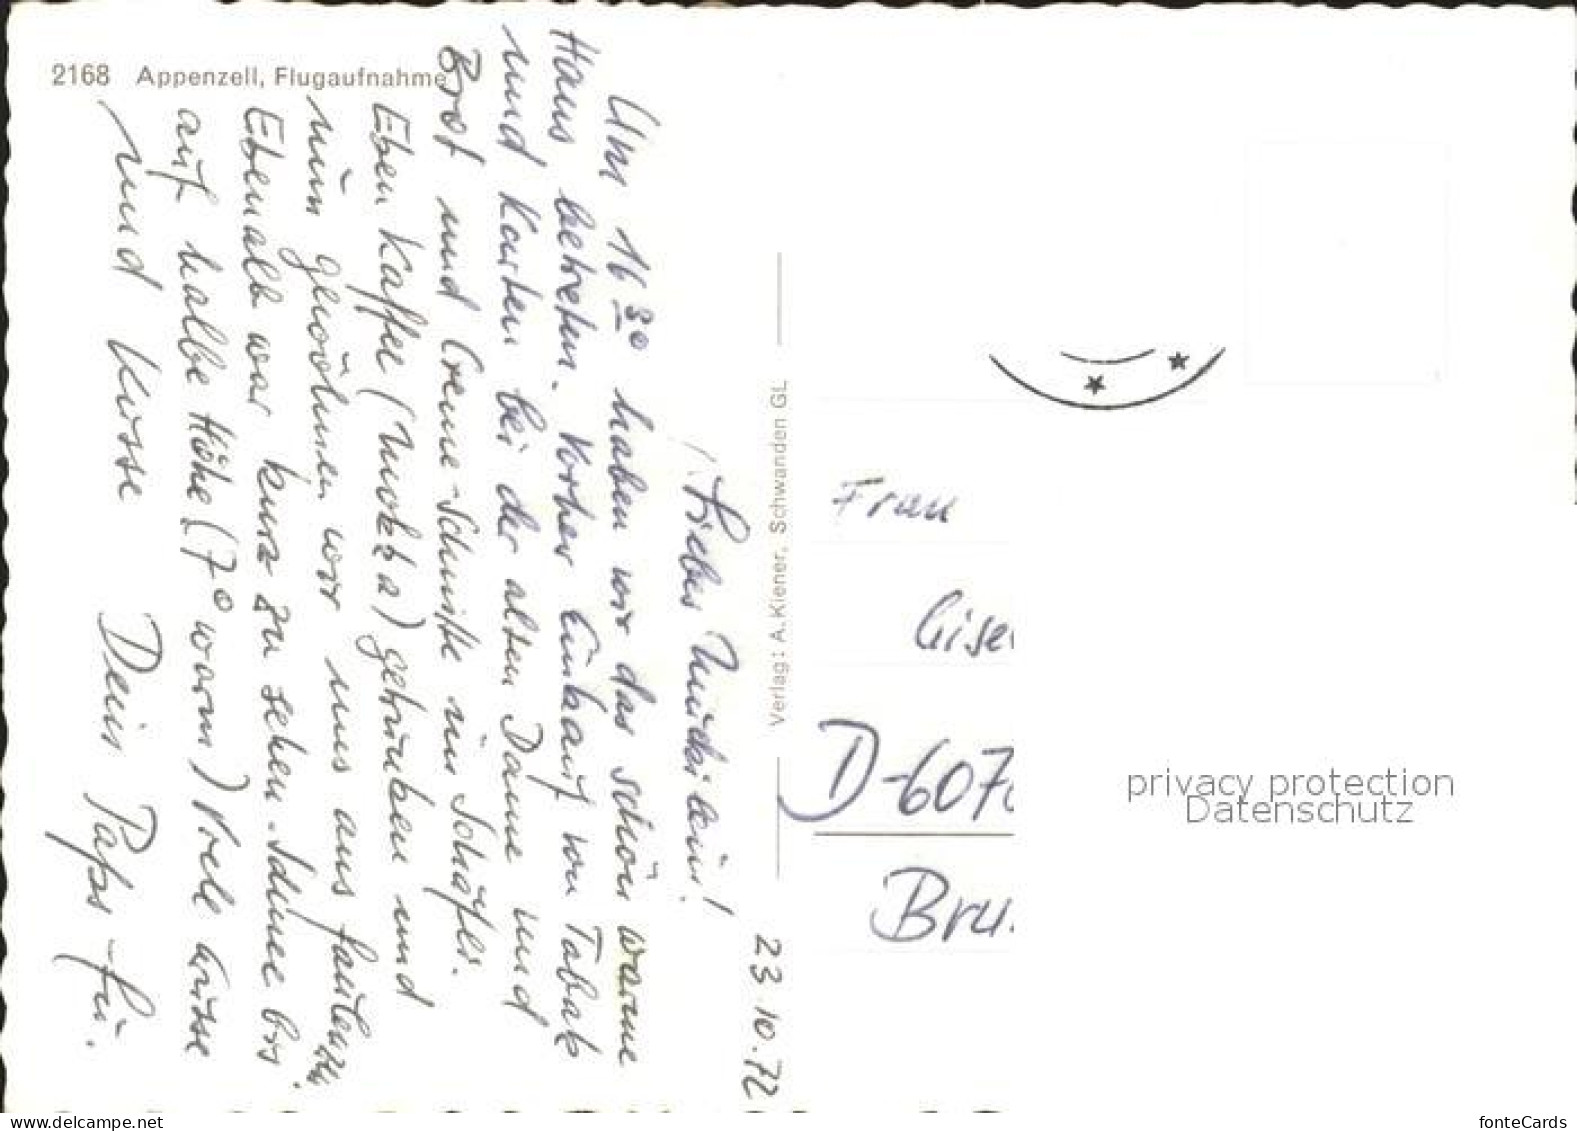 2168 Appenzell, Flugaufnahme
23.10.72
Liebes
Um 16 30 haben wir das schön warme
Haus betreten. Vorher Einkauf von Tabak
und Karten bei der alten Dame und
Brot und Creme-Schnitte im Schäfli.
Eben Kaffee (Mokka) getrunken und
nun gewöhnen wir uns ans faulenzen.
Ebenalb war kurz zu sehen. Schnee bis
auf halbe Höhe (7° warm) Viele Grüsse
und Küsse Dein Paps
Verlag: A. Kiener, Schwanden GL
Frau
Gise
D-607
Bru
privacy protection
Datenschutz
www.delcampe.net
fonteCards